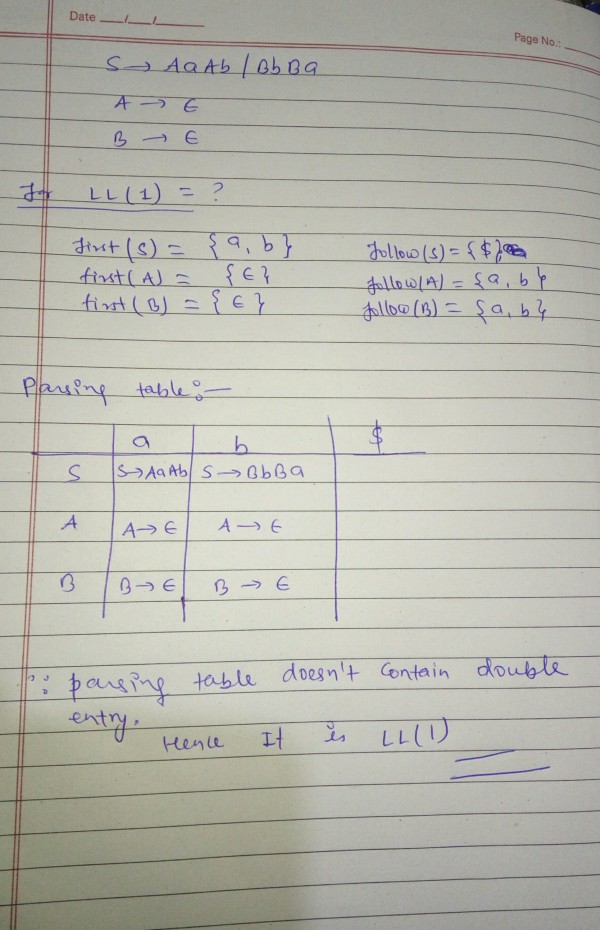 Date __/__/__
Page No.:
S → AaAb / BbBa
A → ϵ
B → ϵ
For LL(1) = ?
first(S) = {a, b} follow(S) = {$}
first(A) = {ϵ} follow(A) = {a, b}
first(B) = {ϵ} follow(B) = {a, b}
Parsing table:-
a b $
S S→AaAb S→BbBa
A A→ϵ A→ϵ
B B→ϵ B→ϵ
∵ parsing table doesn't contain double
entry.
Hence It is LL(1)